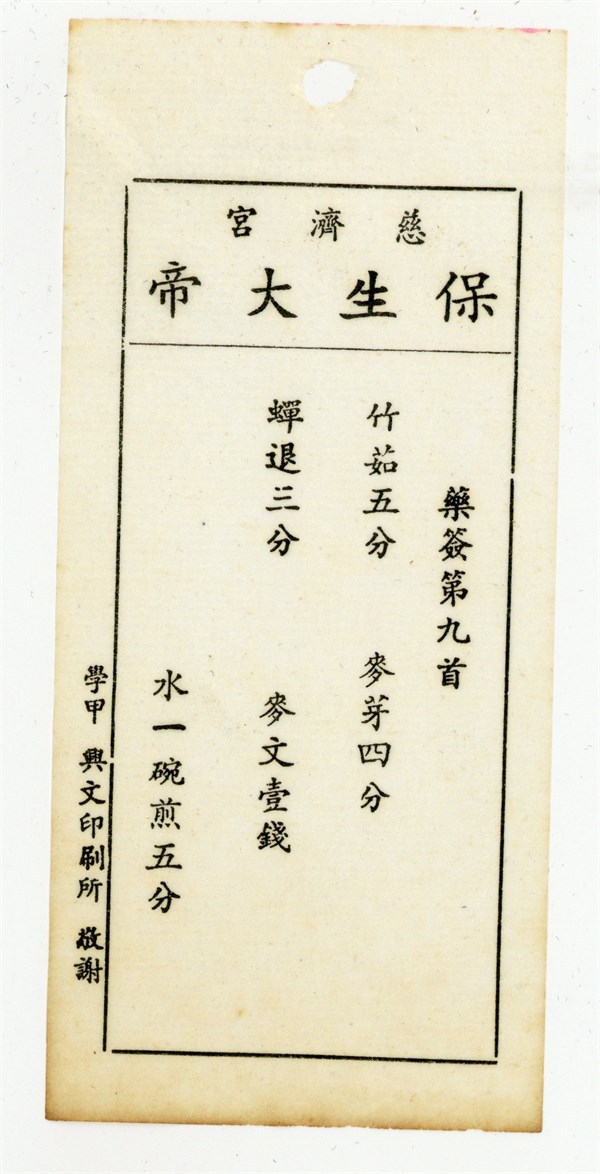 慈濟宮
保生大帝
藥簽第九首
竹茹五分　麥芽四分
蟬退三分　麥文壹錢
水一碗煎五分
學甲 興文印刷所 敬謝